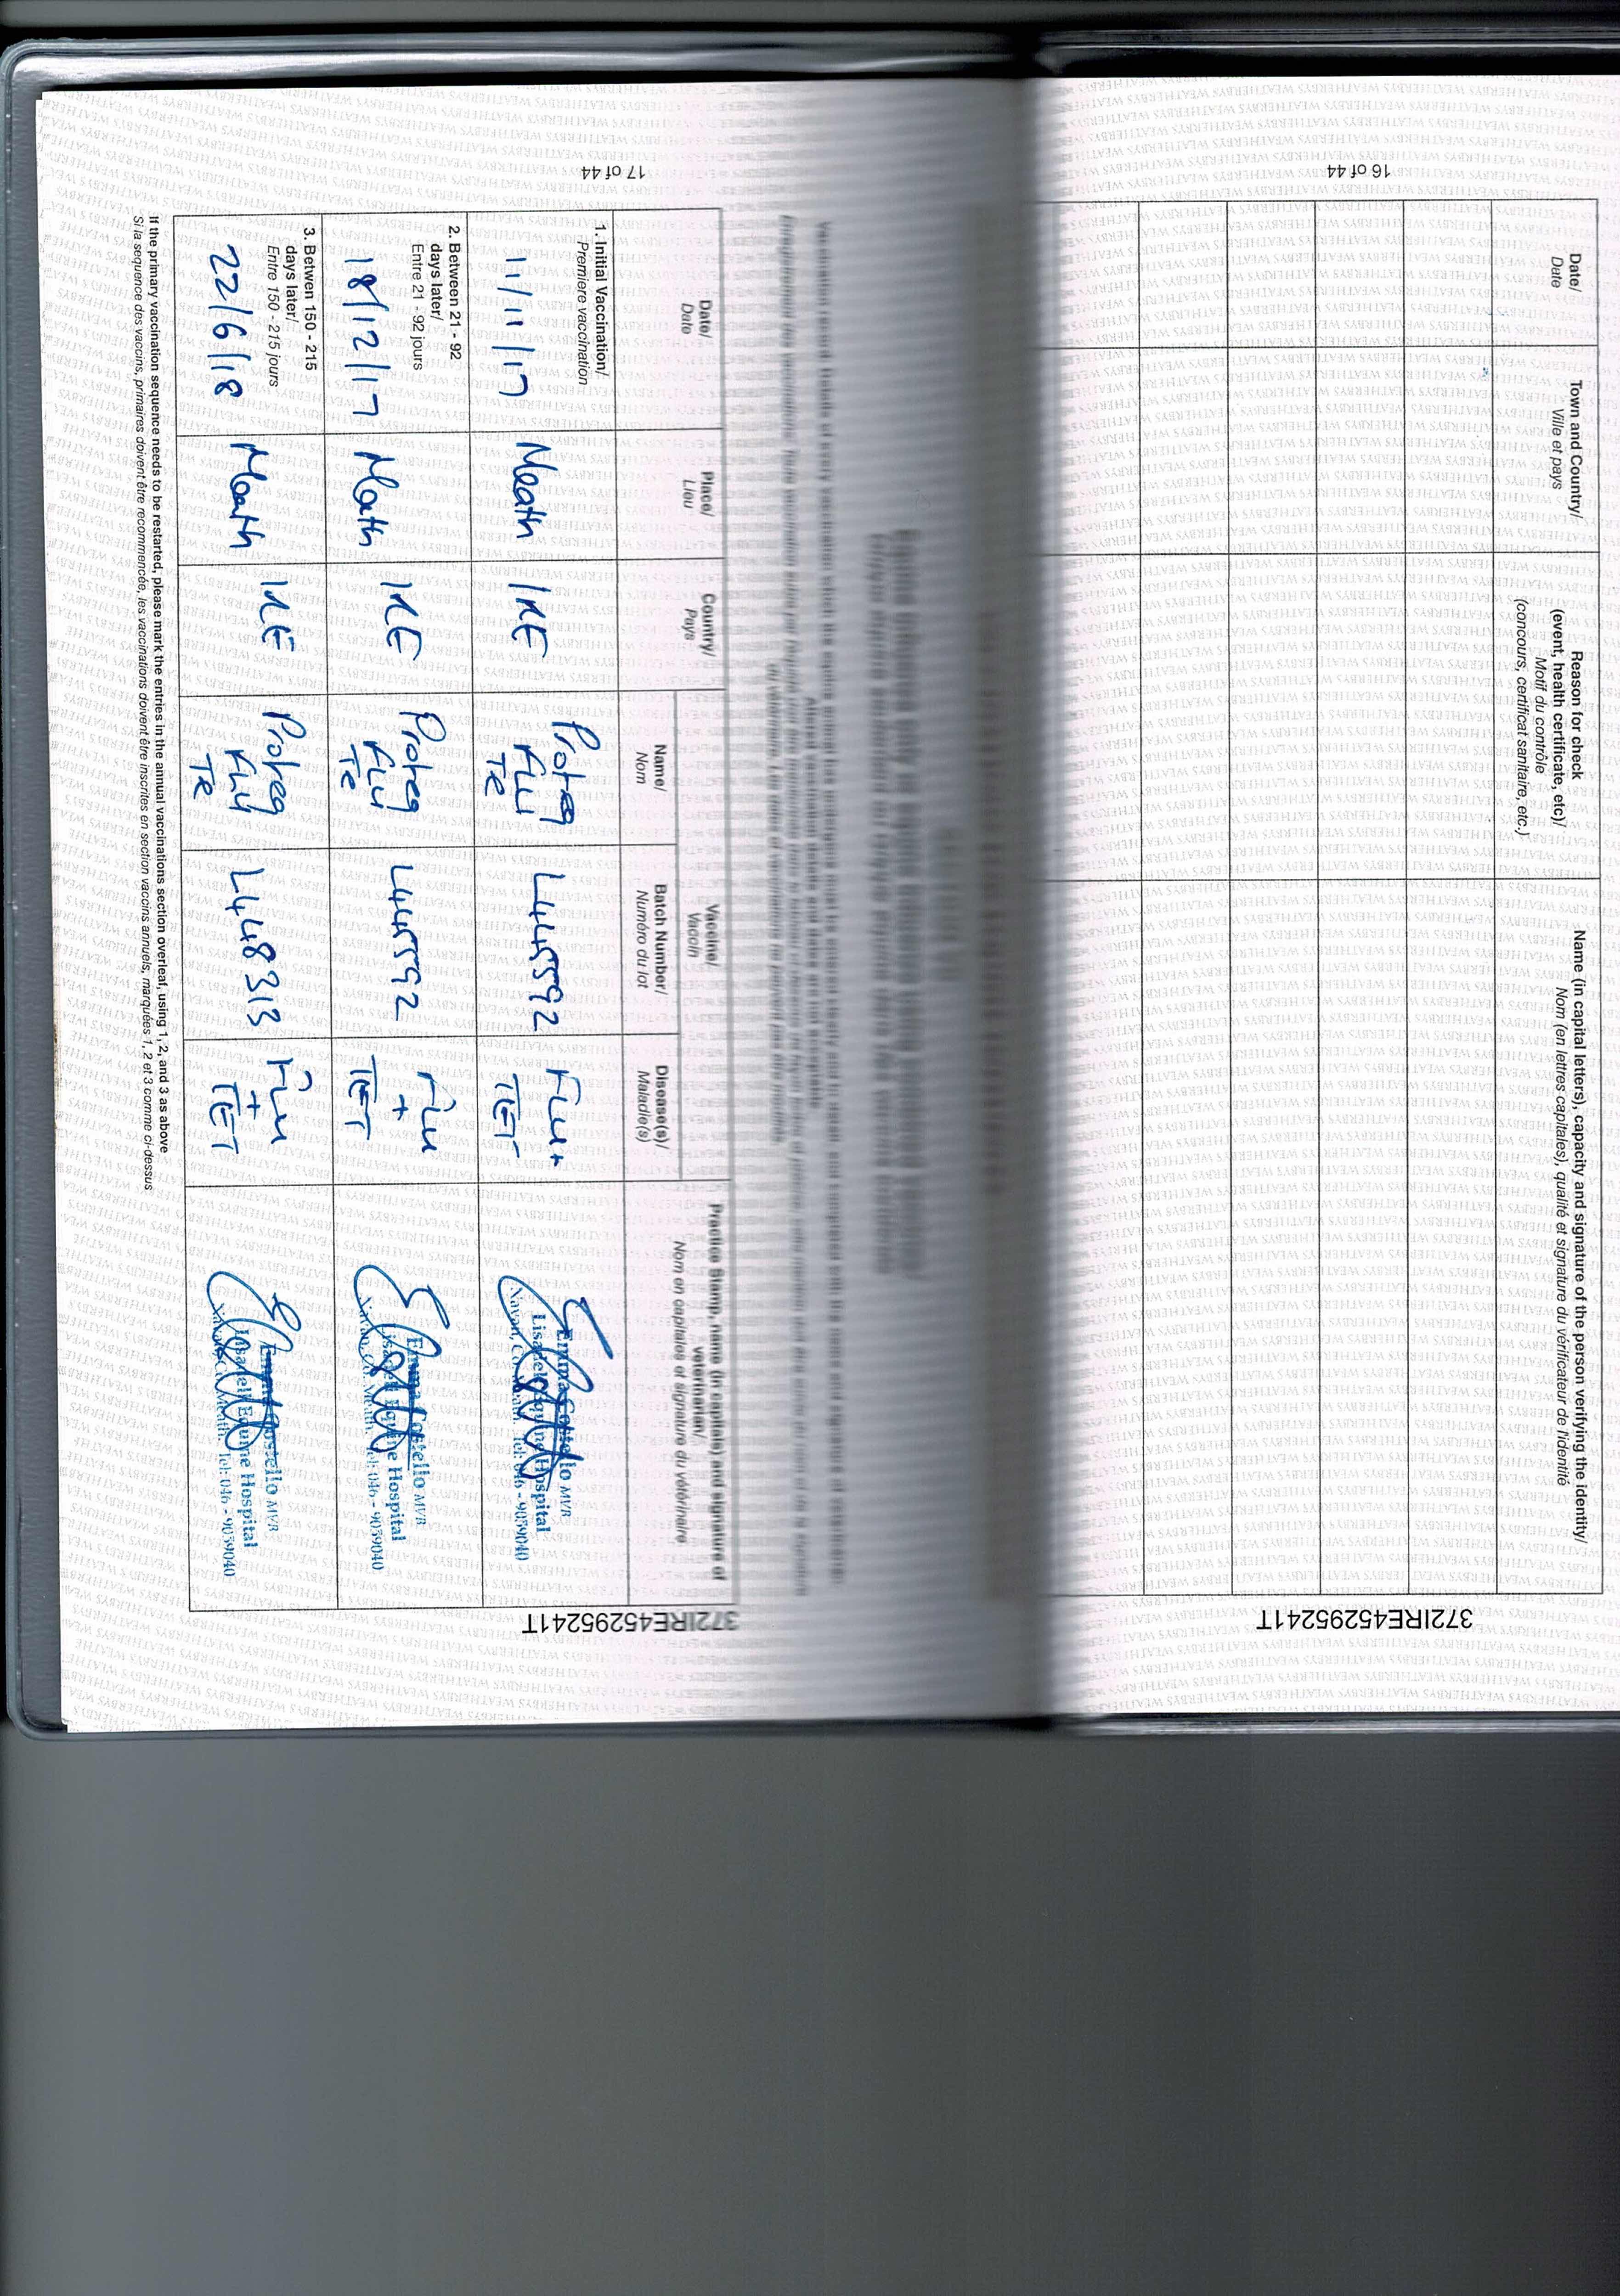 Date/
Date
Town and Country/
Ville et pays
Reason for check
(event, health certificate, etc)/
Motif du contrôle
(concours, certificat sanitaire, etc.)
Name (in capital letters), capacity and signature of the person verifying the identity/
Nom (en lettres capitales), qualité et signature du vérificateur de l'identité
16 of 44
372IRE45295241T
Date/
Date
Place/
Lieu
Country/
Pays
Vaccine/
Vaccin
Name/
Nom
Batch Number/
Numéro du lot
Disease(s)/
Maladie(s)
Practice Stamp, name (in capitals) and signature of
veterinarian/
Nom en capitales et signature du vétérinaire
1. Initial Vaccination/
Premiere vaccination
11/11/17
Meath
IRE
Proteq
FLU
TE
L445592
Flu+
TET
Emma Costello MVB
Lisadell Equine Hospital
Navan, Co. Meath. Tel: 046 - 9059040
2. Between 21 - 92
days later/
Entre 21 - 92 jours
18/12/17
Meath
IRE
Proteq
FLU
TE
L445592
Flu
+
TET
Emma Costello MVB
Lisadell Equine Hospital
Navan, Co. Meath. Tel: 046 - 9059040
3. Betwen 150 - 215
days later/
Entre 150 - 215 jours
22/6/18
Meath
IRE
Proteq
FLU
TE
L448313
Flu
+
TET
Emma Costello MVB
Lisadell Equine Hospital
Navan, Co. Meath. Tel: 046 - 9059040
If the primary vaccination sequence needs to be restarted, please mark the entries in the annual vaccinations section overleaf, using 1, 2, and 3 as above
Si la sequence des vaccins, primaires doivent être recommencée, les vaccinations doivent être inscrites en section vaccins annuels, marquées 1, 2 et 3 comme ci-dessus
17 of 44
372IRE45295241T